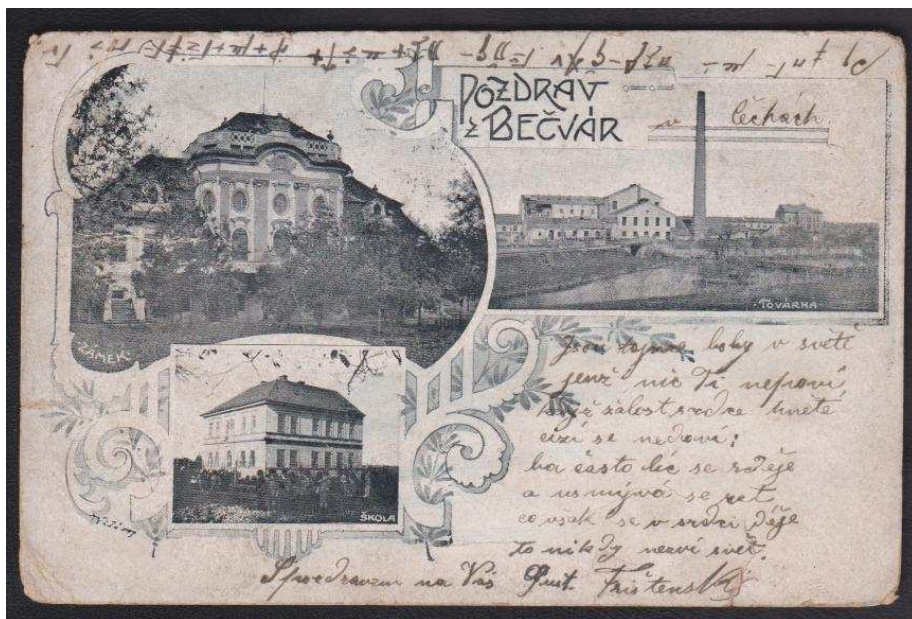 POZDRAV
z BEČVÁR
v čechách.
ZÁMEK
TOVÁRNA
ŠKOLA
Jsou v světě
jenž nic Ti nepoví
když žálost srdce hněte
cizí se nedoví:
ba často líc se směje
a usmývá se ret
co však se v srdci děje
to nikdy nezví svět.
S pozdravem na Vás Gust. Frištenský